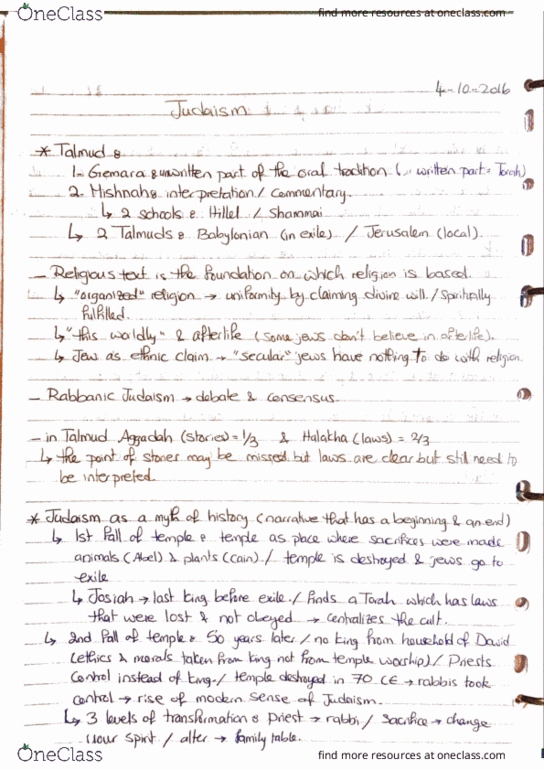 OneClass find more resources at oneclass.com
4-10-2016
Judaism
* Talmud :
1- Gemara : unwritten part of the oral tradition ( written part = Torah)
2. Mishnah : interpretation / commentary.
↳ 2 schools : Hillel / Shammai
↳ 2 Talmuds : Babylonian (in exile) / Jerusalem (local).
- Religious text is the foundation on which religion is based.
↳ "organized" religion → uniformity by claiming divine will / spiritually
fulfilled.
↳ "this worldly" & afterlife (some jews don't believe in afterlife).
↳ Jew as ethnic claim → "secular" jews have nothing to do with religion
- Rabbanic Judaism → debate & consensus.
- in Talmud Aggadah (stories) = 1/3 & Halakha (laws) = 2/3
↳ the point of stories may be missed but laws are clear but still need to
be interpreted.
* Judaism as a myth of history (narrative that has a beginning & an end)
↳ 1st fall of temple : temple as place where sacrifices were made
animals (Abel) & plants (Cain) / temple is destroyed & jews go to
exile
↳ Josiah → last king before exile / finds a Torah which has laws
that were lost & not obeyed → centralizes the cult.
↳ 2nd fall of temple : 50 years later / no king from household of David
(ethics & morals taken from king not from temple worship) / Priests
control instead of king / temple destroyed in 70 CE → rabbis took
control → rise of modern sense of Judaism.
↳ 3 levels of transformation : Priest → rabbi / sacrifice → change
your spirit / alter → family table.
OneClass find more resources at oneclass.com